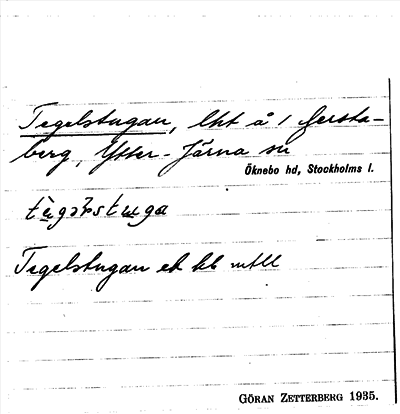 Tegelstugan, lht å 1 Jersta-
berg, Ytter-Järna sn
Öknebo hd, Stockholms l.
Tegelstugan ek bl
GÖRAN ZETTERBERG 1935.